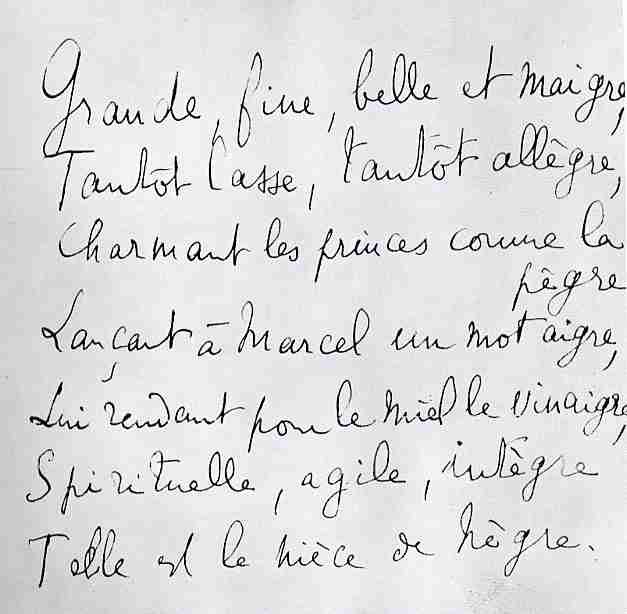 Grande, fine, belle et maigre,
Tantôt lasse, tantôt allègre,
Charmant les princes comme la
pègre
Lançant à Marcel un mot aigre,
Lui rendant pour le miel le vinaigre,
Spirituelle, agile, intègre
Telle est la nièce de Nègre.